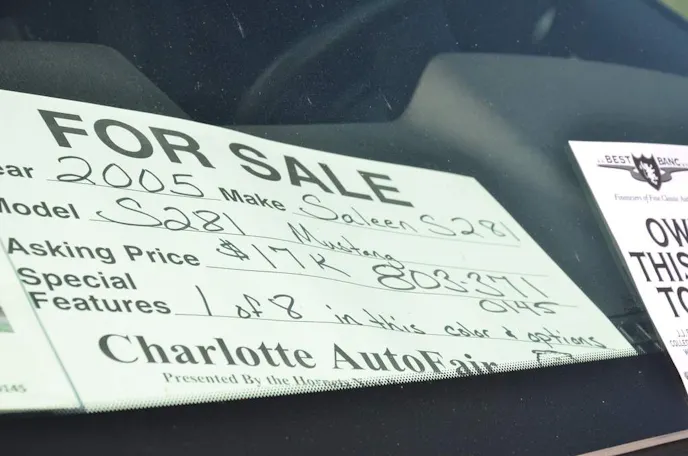 FOR SALE
ear 2005 Make Saleen S281
Model S281 Mustang
Asking Price $17K 803-371
0145
Special
Features 1 of 8 in this color & options
Charlotte AutoFair
Presented By the Hornets
0145
BEST BANG
Financiers of Fine Classic Aut
OW
THIS
TO
J.J.
COLLEC